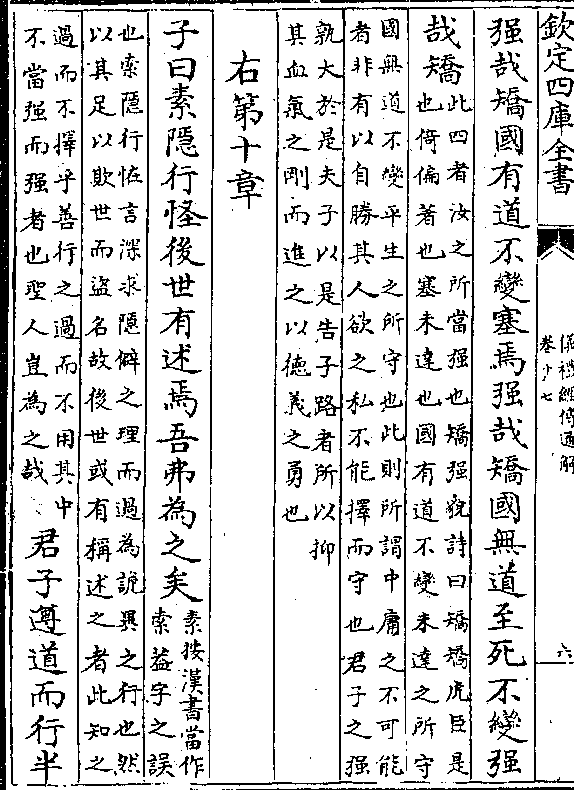 欽定四庫全書
儀禮經傳通解
卷十七
六
强哉矯國有道不變塞焉强哉矯國無道至死不變强
哉矯
此四者汝之所當强也矯强貌詩曰矯矯虎臣是
也倚偏著也塞未達也國有道不變未達之所守
國無道不變平生之所守也此則所謂中庸之不可能
者非有以自勝其人欲之私不能擇而守也君子之强
孰大於是夫子以是告子路者所以抑
其血氣之剛而進之以德義之勇也
右第十章
子曰素隱行怪後世有述焉吾弗為之矣
素按漢書當作
索葢字之誤
也索隱行怪言深求隱僻之理而過為詭異之行也然
以其足以欺世而盜名故後世或有稱述之者此知之
過而不擇乎善行之過而不用其中
不當强而强者也聖人豈為之哉
君子遵道而行半